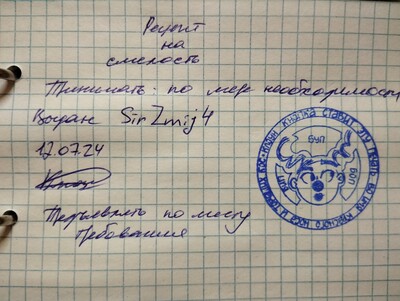 Рецепт
на
смелость
Принимать: по мере необходимости
Выдан SirZmij4
12.07.24
Предъявлять по месту
требования
БУП
БОП